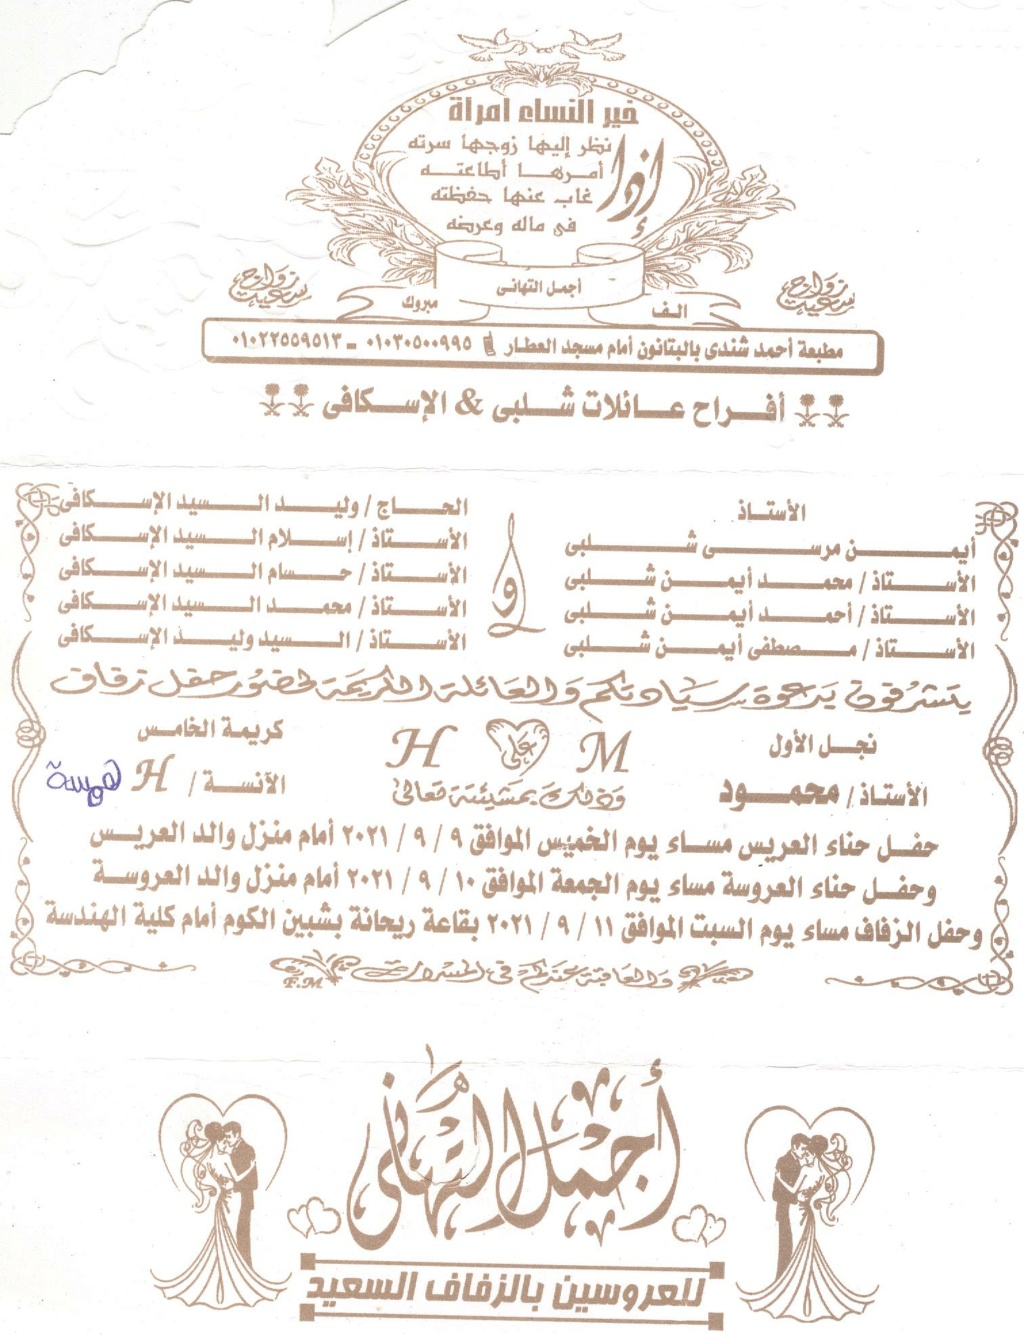 خير النساء امرأة
إذا
نظر إليها زوجها سرته
أمرها أطاعته
غاب عنها حفظته
فى ماله وعرضه
أجمل التهانى
الف
مبروك
زواج سعيد
زواج سعيد
مطبعة أحمد شندى بالبتانون أمام مسجد العطار ٠١٠٣٠٥٠٠٩٩٥ - ٠١٠٢٢٥٥٩٥١٣
أفراح عائلات شلبى & الإسكافى
الأستاذ
أيمن مرسى شلبى
الأستاذ / محمد أيمن شلبى
الأستاذ / أحمد أيمن شلبى
الأستاذ / مصطفى أيمن شلبى
و
الحاج / وليد السيد الإسكافى
الأستاذ / إسلام السيد الإسكافى
الأستاذ / حسام السيد الإسكافى
الأستاذ / محمد السيد الإسكافى
الأستاذ / السيد وليد الإسكافى
يتشرفون بدعوة سيادتكم والعائلة الكريمة لحضور حفل زفاف
نجل الأول
M على H
كريمة الخامس
الأستاذ / محمود
وذلك بمشيئة تعالى
الآنسة / H همسة
حفل حناء العريس مساء يوم الخميس الموافق ٩ / ٩ / ٢٠٢١ أمام منزل والد العريس
وحفل حناء العروسة مساء يوم الجمعة الموافق ١٠ / ٩ / ٢٠٢١ أمام منزل والد العروسة
وحفل الزفاف مساء يوم السبت الموافق ١١ / ٩ / ٢٠٢١ بقاعة ريحانة بشبين الكوم أمام كلية الهندسة
والعاقبة عندكم فى المسرات
F.M
أجمل التهانى
للعروسين بالزفاف السعيد